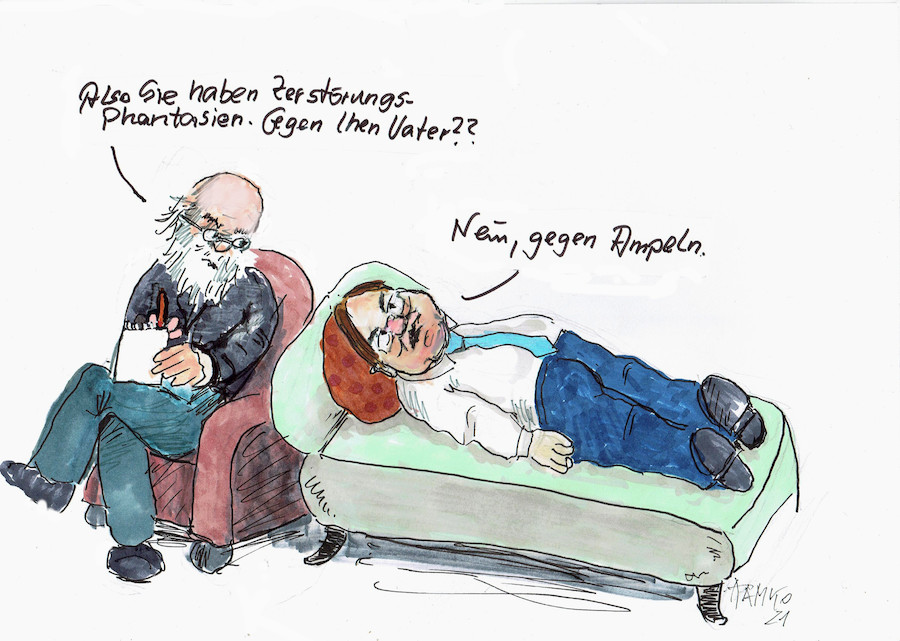 Also Sie haben Zerstörungs-
Phantasien. Gegen Ihen Vater??
Nein, gegen Ampeln.
ARMKO
21